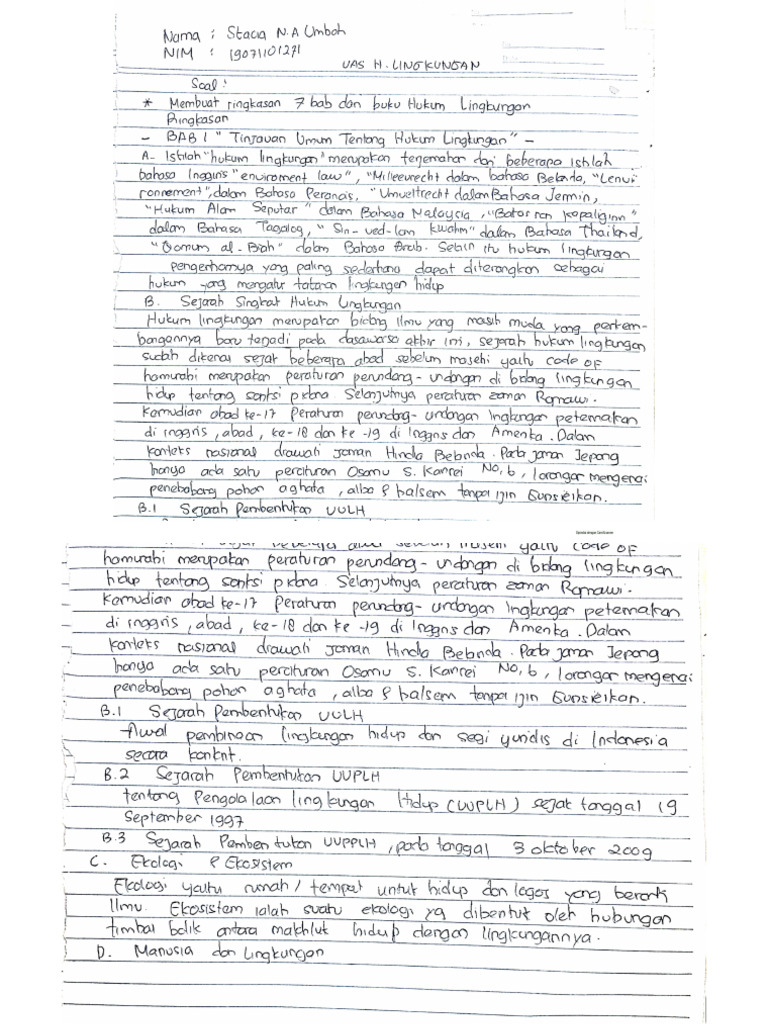 Nama : Stacia N.A Umboh
NIM : 19071101271
UAS H. LINGKUNGAN
Soal :
* Membuat ringkasan 7 bab dari buku Hukum Lingkungan
Ringkasan
- BAB 1 " Tinjauan Umum Tentang Hukum Lingkungan" -
A- Istilah "hukum lingkungan" merupakan terjemahan dari beberapa istilah
bahasa Inggris "enviroment law", "Milieeurecht dalam bahasa Belanda, "Lenvi
ronnement", dalam Bahasa Perancis, "Umweltrecht dalam Bahasa Jermin,
"Hukum Alam Seputar" dalam Bahasa Malaysia, "Batas nan Kapaliginn"
dalam Bahasa Tagalog, " Sin-ved-lom kwahm" dalam Bahasa Thailand,
"Qomum al-Biah" dalam Bahasa Arab. Selain itu hukum lingkungan
pengertiannya yang paling sederhana dapat diterangkan sebagai
hukum yang mengatur tatanan lingkungan hidup
B. Sejarah Singkat Hukum Lingkungan
Hukum lingkungan merupakan bidang ilmu yang masih muda yang perkem-
bangannya baru terjadi pada dasawarsa akhir ini, sejarah hukum lingkungan
sudah dikenal sejak beberapa abad sebelum masehi yaitu code of
hamurabi merupakan peraturan perundang-undangan di bidang lingkungan
hidup tentang sanksi pidana. Selanjutnya peraturan zaman Romawi.
Kemudian abad ke-17 Peraturan perundang-undangan lingkungan peternakan
di inggris, abad, ke-18 dan ke-19 di Inggris dan Amerika. Dalam
konteks nasional diawali jaman Hindia Belanda. Pada jaman Jepang
hanya ada satu peraturan Osamu S. Kanrei No, 6, larangan mengenai
penebabang pohon aghata, alba & balsem tanpa ijin Gunseikan.
B.1 Sejarah Pembentukan UULH
sejak beberapa abad sebelum masehi yaitu code of
hamurabi merupakan peraturan perundang-undangan di bidang lingkungan
hidup tentang sanksi pidana. Selanjutnya peraturan zaman Romawi.
Kemudian abad ke-17 Peraturan perundang-undangan lingkungan peternakan
di inggris, abad, ke-18 dan ke-19 di Inggris dan Amerika. Dalam
konteks nasional diawali jaman Hindia Belanda. Pada jaman Jepang
hanya ada satu peraturan Osamu S. Kanrei No, 6, larangan mengenai
penebabang pohon aghata, alba & balsem tanpa ijin Gunseikan.
B.1 Sejarah Pembentukan UULH
Awal pembinaan lingkungan hidup dari segi yuridis di Indonesia
secara konkrit.
B.2 Sejarah Pembentukan UUPLH
tentang Pengolalaan lingkungan Hidup (UUPLH) sejak tanggal 19
September 1997
B.3 Sejarah Pembentukan UUPPLH, pada tanggal 3 oktober 2009
C. Ekologi & Ekosistem
Ekologi yaitu rumah / tempat untuk hidup dan logos yang berarti
Ilmu. Ekosistem ialah suatu ekologi yg dibentuk oleh hubungan
timbal balik antara makhluk hidup dengan lingkungannya.
D. Manusia dan Lingkungan